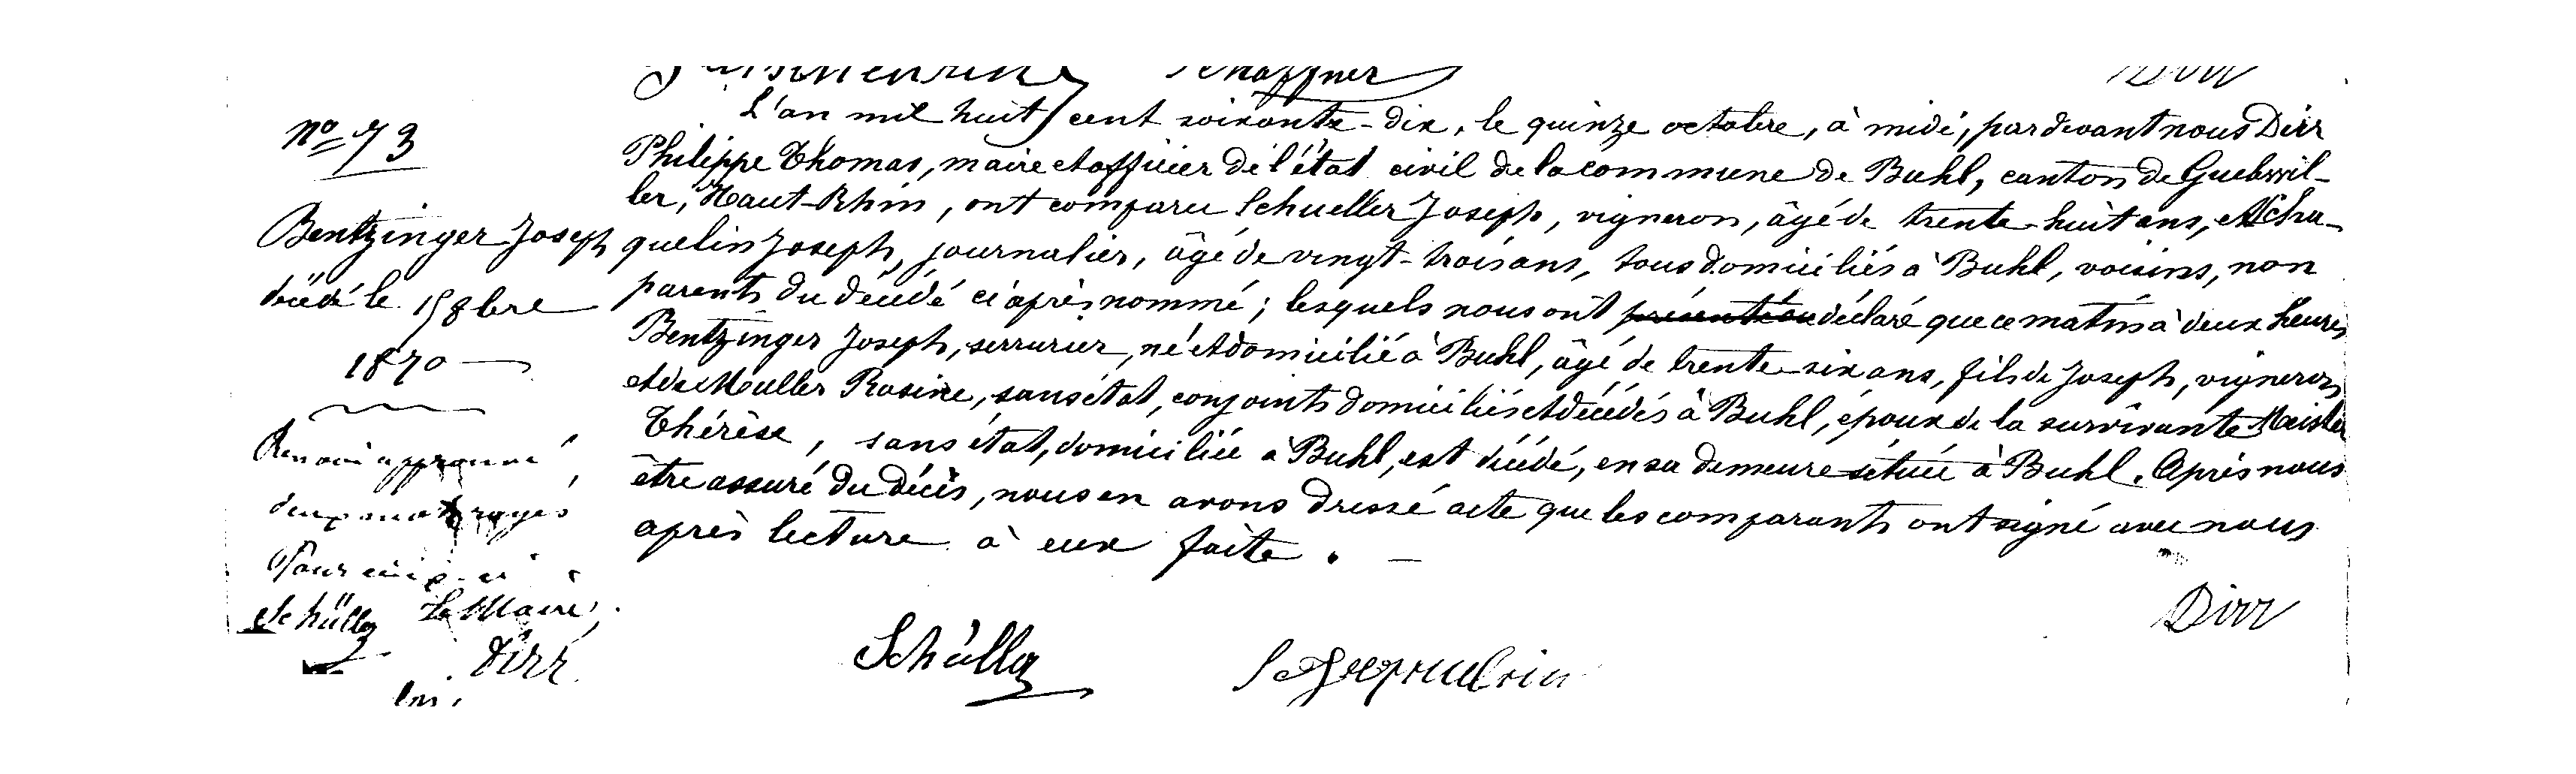 Schaffner Dirr
L'an mil huit cent soixante-dix, le quinze octobre, à midi, pardevant nous Dirr
Philippe Thomas, maire et officier de l'état civil de la commune de Buhl, canton de Guebwil-
ler, Haut-Rhin, ont comparu Schueller Joseph, vigneron, âgé de trente-huit ans, et Schu-
quelin Joseph, journalier, âgé de vingt-trois ans, tous domiciliés à Buhl, voisins, non
parents du décédé ci après nommé; lesquels nous ont déclaré que ce matin à deux heures
Bentzinger Joseph, serrurier, né et domicilié à Buhl, âgé de trente-six ans, fils de Joseph, vigneron
et de Muller Rosine, sans état, conjoints domiciliés et décédés à Buhl, époux de la survivante Meister
Thérèse, sans état, domiciliée à Buhl, est décédé, en sa demeure située à Buhl. Après nous
être assuré du décès, nous en avons dressé acte que les comparants ont signé avec nous
après lecture à eux faite. —
Schüller Dirr
No 73
Bentzinger Joseph
décédé le 15 8bre
1870 —
Renvoi approuvé,
deux mots rayés
Schüller Le Maire,
Dirr